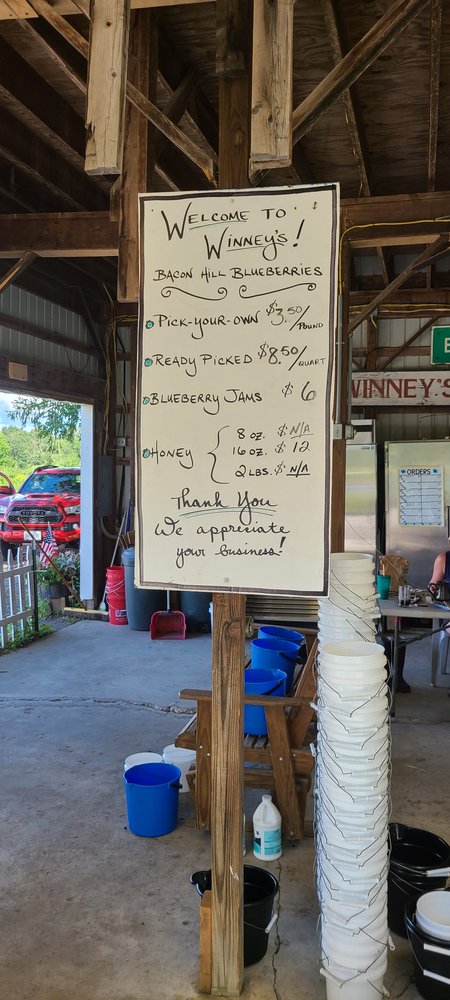 Welcome to
Winney's!
Bacon Hill Blueberries
Pick-your-own $3.50/Pound
Ready Picked $8.50/Quart
Blueberry Jams $6
Honey { 8 oz. $ N/A
16 oz. $ 12
2 lbs. $ N/A
Thank You
We appreciate
your business!
WINNEY'S
ORDERS
TOYOTA